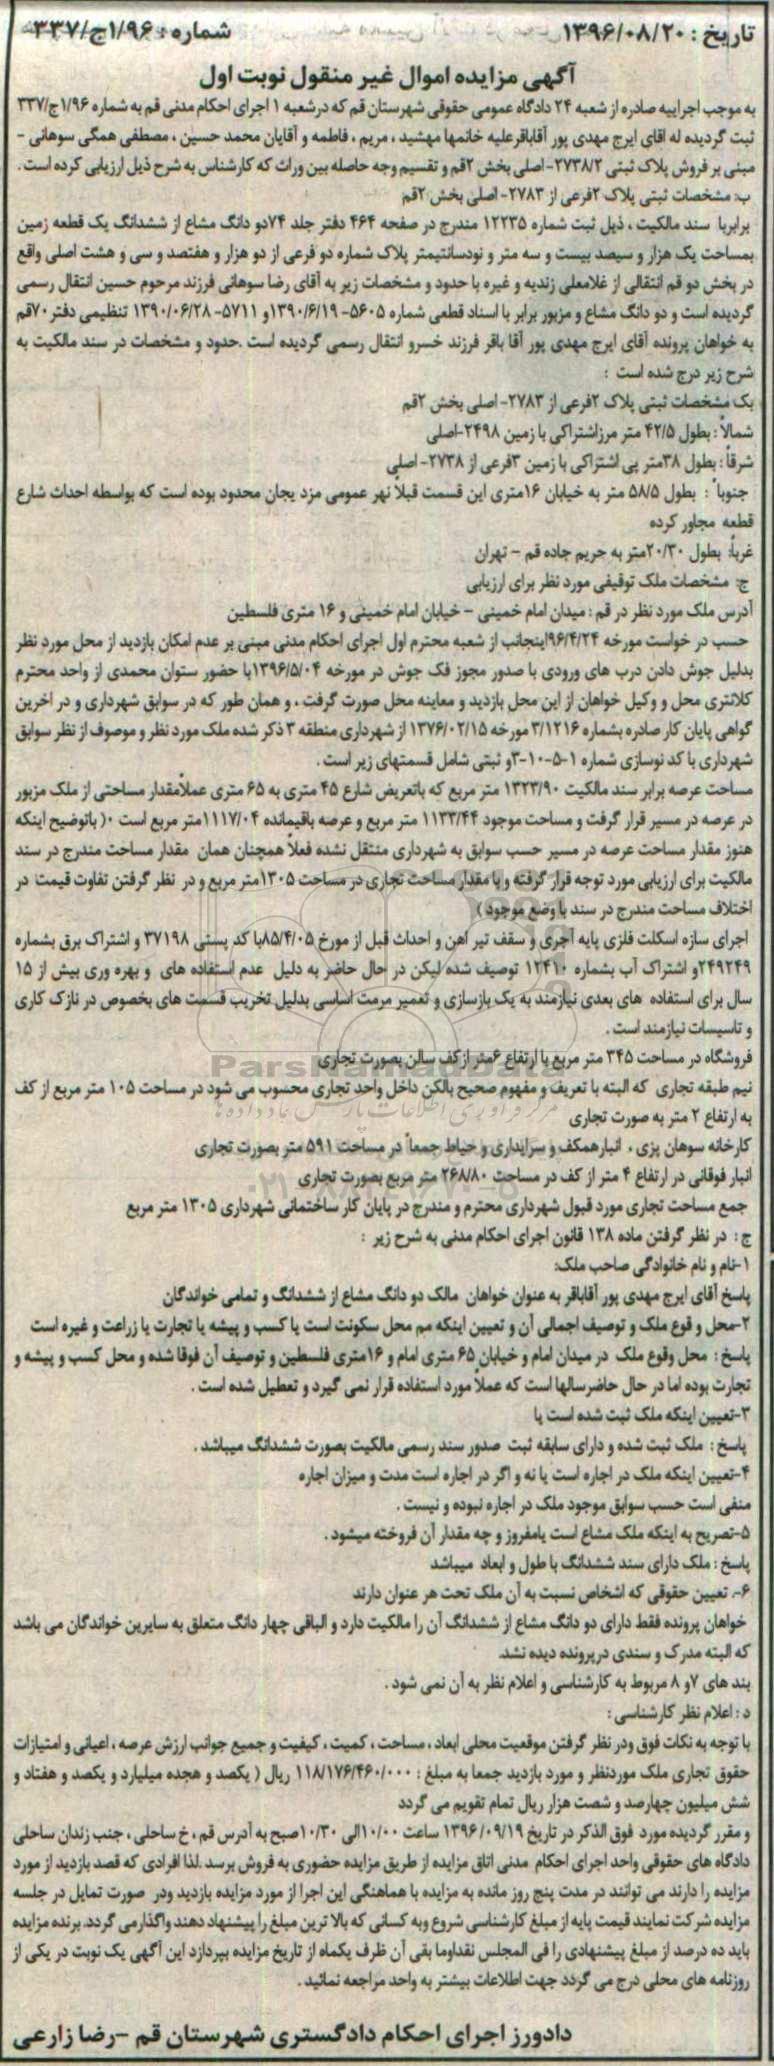 تاریخ : ۱۳۹۶/۰۸/۲۰
شماره : ۱/۹۶ج/۳۳۷
آگهی مزایده اموال غیر منقول نوبت اول
به موجب اجراییه صادره از شعبه ۲۴ دادگاه عمومی حقوقی شهرستان قم که درشعبه ۱ اجرای احکام مدنی قم به شماره ۱/۹۶ج/۳۳۷
ثبت گردیده له اقای ایرج مهدی پور آقاباقرعلیه خانمها مهشید ، مریم ، فاطمه و آقایان محمد حسین ، مصطفی همگی سوهانی –
مبنی بر فروش پلاک ثبتی ۲۷۳۸/۲- اصلی بخش ۲قم و تقسیم وجه حاصله بین وراث که کارشناس به شرح ذیل ارزیابی کرده است .
ب: مشخصات ثبتی پلاک ۲فرعی از ۲۷۸۳- اصلی بخش ۲قم
برابربا سند مالکیت ، ذیل ثبت شماره ۱۲۲۳۵ مندرج در صفحه ۴۶۴ دفتر جلد ۷۴دو دانگ مشاع از ششدانگ یک قطعه زمین
بمساحت یک هزار و سیصد بیست و سه متر و نودسانتیمتر پلاک شماره دو فرعی از دو هزار و هفتصد و سی و هشت اصلی واقع
در بخش دو قم انتقالی از غلامعلی زندیه و غیره با حدود و مشخصات زیر به آقای رضا سوهانی فرزند مرحوم حسین انتقال رسمی
گردیده است و دو دانگ مشاع و مزبور برابر با اسناد قطعی شماره ۵۶۰۵- ۱۳۹۰/۶/۱۹و ۵۷۱۱- ۱۳۹۰/۰۶/۲۸ تنظیمی دفتر ۷۰قم
به خواهان پرونده آقای ایرج مهدی پور آقا باقر فرزند خسرو انتقال رسمی گردیده است .حدود و مشخصات در سند مالکیت به
شرح زیر درج شده است :
یک مشخصات ثبتی پلاک ۲فرعی از ۲۷۸۳- اصلی بخش ۲قم
شمالاً : بطول ۴۲/۵ متر مرزاشتراکی با زمین ۲۴۹۸-اصلی
شرقاً : بطول ۳۸متر پی اشتراکی با زمین ۳فرعی از ۲۷۳۸- اصلی
جنوباً : بطول ۵۸/۵ متر به خیابان ۱۶متری این قسمت قبلاً نهر عمومی مزد یجان محدود بوده است که بواسطه احداث شارع
قطعه مجاور کرده
غرباً: بطول ۲۰/۳۰متر به حریم جاده قم – تهران
ج: مشخصات ملک توقیفی مورد نظر برای ارزیابی
آدرس ملک مورد نظر در قم : میدان امام خمینی – خیابان امام خمینی و ۱۶ متری فلسطین
حسب در خواست مورخه ۹۶/۴/۲۴اینجانب از شعبه محترم اول اجرای احکام مدنی مبنی بر عدم امکان بازدید از محل مورد نظر
بدلیل جوش دادن درب های ورودی با صدور مجوز فک جوش در مورخه ۱۳۹۶/۵/۰۴با حضور ستوان محمدی از واحد محترم
کلانتری محل و وکیل خواهان از این محل بازدید و معاینه محل صورت گرفت ، و همان طور که در سوابق شهرداری و در اخرین
گواهی پایان کار صادره بشماره ۳/۱۲۱۶ مورخه ۱۳۷۶/۰۲/۱۵ از شهرداری منطقه ۳ ذکر شده ملک مورد نظر و موصوف از نظر سوابق
شهرداری با کد نوسازی شماره ۱-۵-۱۰-۳و ثبتی شامل قسمتهای زیر است .
مساحت عرصه برابر سند مالکیت ۱۳۲۳/۹۰ متر مربع که باتعریض شارع ۴۵ متری به ۶۵ متری عملاًمقدار مساحتی از ملک مزبور
در عرصه در مسیر قرار گرفت و مساحت موجود ۱۱۳۳/۴۴ متر مربع و عرصه باقیمانده ۱۱۱۷/۰۴متر مربع است ۰( باتوضیح اینکه
هنوز مقدار مساحت عرصه در مسیر حسب سوابق به شهرداری منتقل نشده فعلاً همچنان همان مقدار مساحت مندرج در سند
مالکیت برای ارزیابی مورد توجه قرار گرفته و با مقدار مساحت تجاری در مساحت ۱۳۰۵متر مربع و در نظر گرفتن تفاوت قیمت در
اختلاف مساحت مندرج در سند با وضع موجود )
اجرای سازه اسکلت فلزی پایه آجری و سقف تیر آهن و احداث قبل از مورخ ۸۵/۴/۰۵با کد پستی ۳۷۱۹۸ و اشتراک برق بشماره
۲۴۹۲۴۹و اشتراک آب بشماره ۱۲۴۱۰ توصیف شده لیکن در حال حاضر به دلیل عدم استفاده های و بهره وری بیش از ۱۵
سال برای استفاده های بعدی نیازمند به یک بازسازی و تعمیر مرمت اساسی بدلیل تخریب قسمت های بخصوص در نازک کاری
و تاسیسات نیازمند است .
فروشگاه در مساحت ۳۴۵ متر مربع با ارتفاع ۶متر ازکف سالن بصورت تجاری
نیم طبقه تجاری که البته با تعریف و مفهوم صحیح بالکن داخل واحد تجاری محسوب می شود در مساحت ۱۰۵ متر مربع از کف
به ارتفاع ۲ متر به صورت تجاری
کارخانه سوهان پزی ، انبارهمکف و سرایداری و حیاط جمعاً در مساحت ۵۹۱ متر بصورت تجاری
انبار فوقانی در ارتفاع ۴ متر از کف در مساحت ۲۶۸/۸۰ متر مربع بصورت تجاری
جمع مساحت تجاری مورد قبول شهرداری محترم و مندرج در پایان کار ساختمانی شهرداری ۱۳۰۵ متر مربع
ج : در نظر گرفتن ماده ۱۳۸ قانون اجرای احکام مدنی به شرح زیر :
۱-نام و نام خانوادگی صاحب ملک:
پاسخ آقای ایرج مهدی پور آقاباقر به عنوان خواهان مالک دو دانگ مشاع از ششدانگ و تمامی خواندگان
۲-محل و قوع ملک و توصیف اجمالی آن و تعیین اینکه مم محل سکونت است یا کسب و پیشه یا تجارت یا زراعت و غیره است
پاسخ : محل وقوع ملک در میدان امام و خیابان ۶۵ متری امام و ۱۶متری فلسطین و توصیف آن فوقا شده و محل کسب و پیشه و
تجارت بوده اما در حال حاضرسالها است که عملا مورد استفاده قرار نمی گیرد و تعطیل شده است .
۳-تعیین اینکه ملک ثبت شده است یا
پاسخ : ملک ثبت شده و دارای سابقه ثبت صدور سند رسمی مالکیت بصورت ششدانگ میباشد .
۴-تعیین اینکه ملک در اجاره است یا نه و اگر در اجاره است مدت و میزان اجاره
منفی است حسب سوابق موجود ملک در اجاره نبوده و نیست .
۵-تصریح به اینکه ملک مشاع است یامفروز و چه مقدار آن فروخته میشود .
پاسخ : ملک دارای سند ششدانگ با طول و ابعاد میباشد
۶-. تعیین حقوقی که اشخاص نسبت به آن ملک تحت هر عنوان دارند
خواهان پرونده فقط دارای دو دانگ مشاع از ششدانگ آن را مالکیت دارد و الباقی چهار دانگ متعلق به سایرین خواندگان می باشد
که البته مدرک و سندی درپرونده دیده نشد.
بند های ۷و ۸ مربوط به کارشناسی و اعلام نظر به آن نمی شود .
د : اعلام نظر کارشناسی :
با توجه به نکات فوق ودر نظر گرفتن موقعیت محلی ابعاد ، مساحت ، کمیت ، کیفیت و جمیع جوانب ارزش عرصه ، اعیانی و امتیازات
حقوق تجاری ملک موردنظر و مورد بازدید جمعا به مبلغ : ۱۱۸/۱۷۶/۴۶۰/۰۰۰ ریال ( یکصد و هجده میلیارد و یکصد و هفتاد و
شش میلیون چهارصد و شصت هزار ریال تمام تقویم می گردد
و مقرر گردیده مورد فوق الذکر در تاریخ ۱۳۹۶/۰۹/۱۹ ساعت ۱۰/۰۰الی ۱۰/۳۰صبح به آدرس قم ، خ ساحلی ، جنب زندان ساحلی
دادگاه های حقوقی واحد اجرای احکام مدنی اتاق مزایده از طریق مزایده حضوری به فروش برسد .لذا افرادی که قصد بازدید از مورد
مزایده را دارند می توانند در مدت پنج روز مانده به مزایده با هماهنگی این اجرا از مورد مزایده بازدید ودر صورت تمایل در جلسه
مزایده شرکت نمایند قیمت پایه از مبلغ کارشناسی شروع وبه کسانی که بالا ترین مبلغ را پیشنهاد دهند واگذارمی گردد. برنده مزایده
باید ده درصد از مبلغ پیشنهادی را فی المجلس نقداوما بقی آن ظرف یکماه از تاریخ مزایده بپردازد این آگهی یک نوبت در یکی از
روزنامه های محلی درج می گردد جهت اطلاعات بیشتر به واحد مراجعه نمائید .
دادورز اجرای احکام دادگستری شهرستان قم –رضا زارعی
ParsNamadData
مرکز فرآوری اطلاعات پارس نماد داده ها